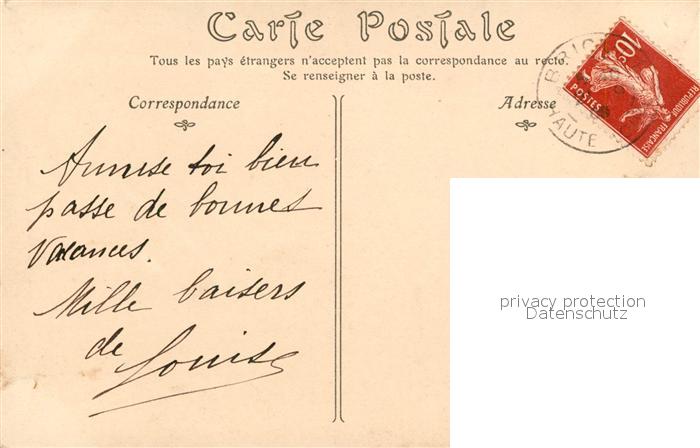 Carte Postale
Tous les pays étrangers n'acceptent pas la correspondance au recto.
Se renseigner à la poste.
Correspondance
Adresse
Amuse toi bien
passe de bonnes
vacances.
Mille baisers
de
Louise
10c
POSTES
REPUBLIQUE FRANÇAISE
HAUTE
privacy protection
Datenschutz